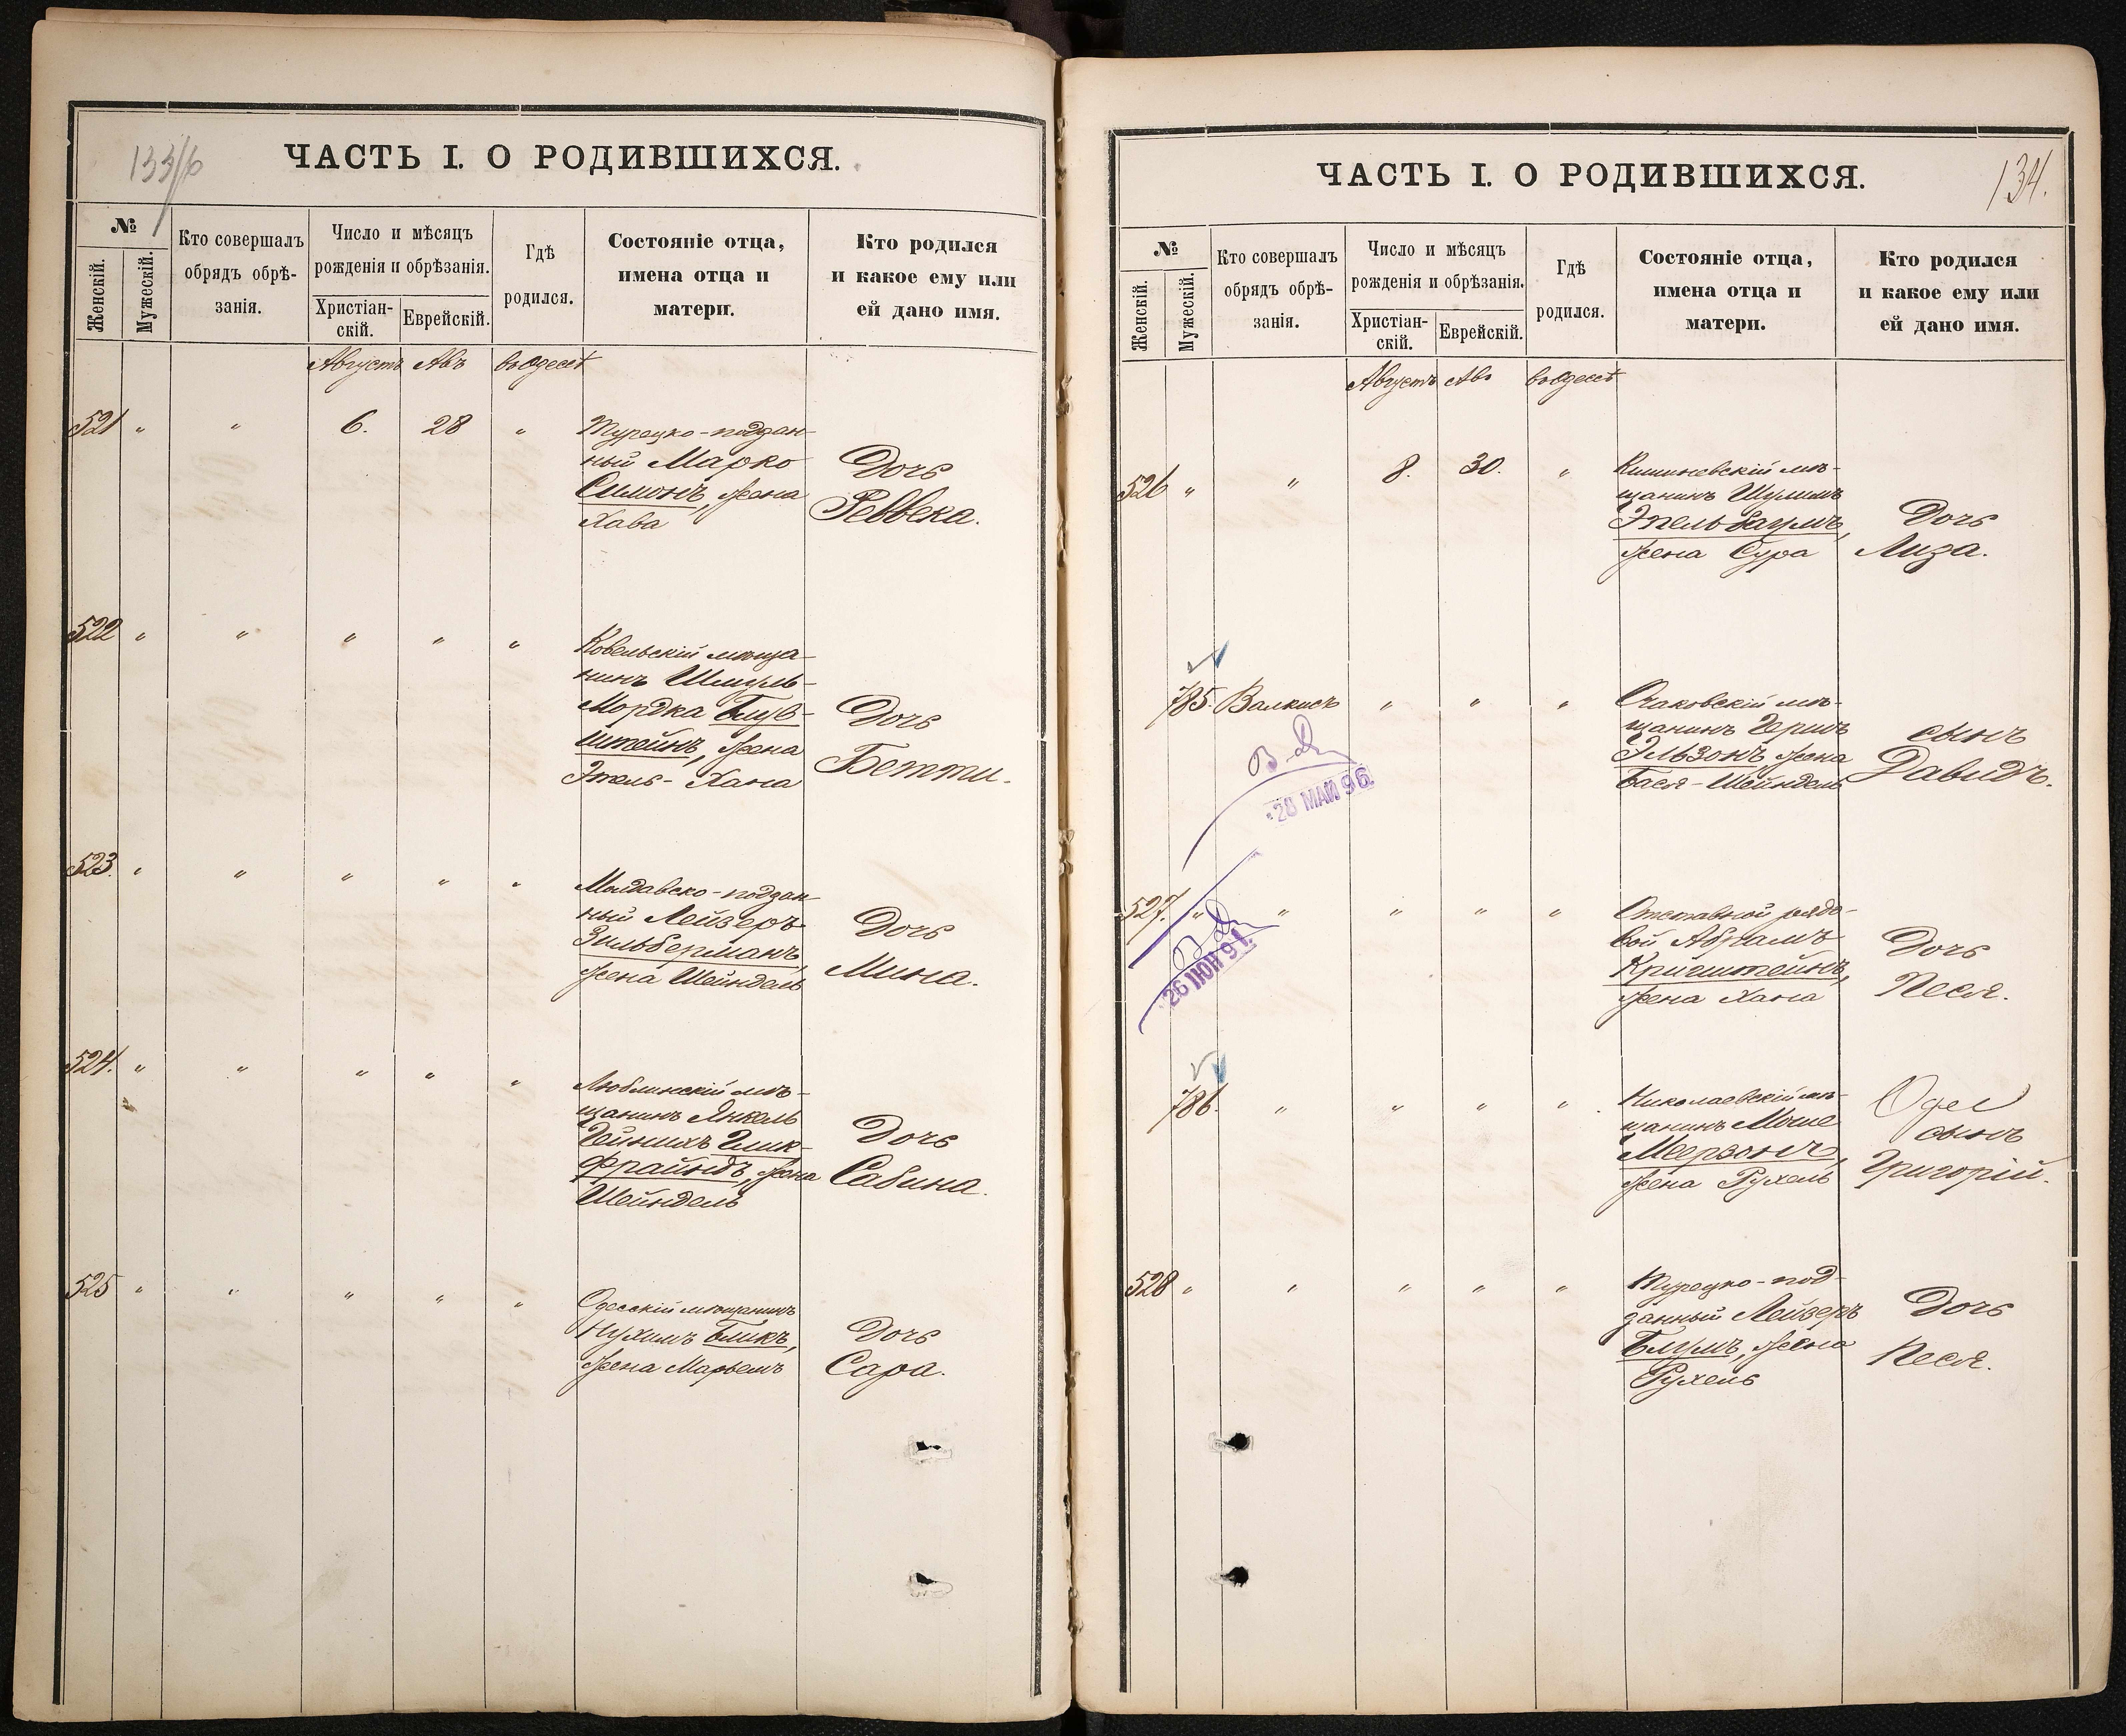 133/б
ЧАСТЬ I. О РОДИВШИХСЯ.
№
Женскій.
Мужескій.
Кто совершалъ
обрядъ обрѣ-
занія.
Число и мѣсяцъ
рожденія и обрѣзанія.
Христіан-
скій.
Еврейскій.
Гдѣ
родился.
Состояніе отца,
имена отца и
матери.
Кто родился
и какое ему или
ей дано имя.
Августъ Авъ въ Одессѣ
521 " " 6. 28 "
Турецко-поддан-
ный Марко
Симонъ, жена
Хава
Дочь
Реввека.
522 " " " " "
Ковельскій мѣща-
нинъ Шмуль-
Мордка Блув-
штейнъ, жена
Этель-Хана
Дочь
Бетти.
523. " " " " "
Молдавско-поддан-
ный Лейзеръ
Зильберманъ,
жена Шейндель
Дочь
Мина.
524. " " " " "
Люблинскій мѣ-
щанинъ Янкель
Гейнихъ Глик-
фрайндъ, жена
Шейндель
Дочь
Сабина.
525 " " " " "
Одесскій мѣщанинъ
Нухимъ Бликъ,
жена Марьемъ
Дочь
Сара.
134.
ЧАСТЬ I. О РОДИВШИХСЯ.
№
Женскій.
Мужескій.
Кто совершалъ
обрядъ обрѣ-
занія.
Число и мѣсяцъ
рожденія и обрѣзанія.
Христіан-
скій.
Еврейскій.
Гдѣ
родился.
Состояніе отца,
имена отца и
матери.
Кто родился
и какое ему или
ей дано имя.
Августъ Авъ въ Одессѣ
526 " " 8. 30. "
Кишиневскій мѣ-
щанинъ Шулимъ
Эпельбаумъ,
жена Сура
Дочь
Лиза.
785. Валкисъ " " "
Очаковскій мѣ-
щанинъ Гершъ
Эльзонъ, жена
Бася-Шейндель
сынъ
Давидъ.
28 МАЙ 96
527. " " " " "
Отставной рядо-
вой Абрамъ
Кригштейнъ,
жена Хана
Дочь
Песя.
26 ІЮН 91
786. " " " "
Николаевскій мѣ-
щанинъ Мошке
Меерзонъ,
жена Рухель
сынъ
Григорій.
528 " " " " "
Турецко-под-
данный Лейзеръ
Блумъ, жена
Рухель
Дочь
Песя.